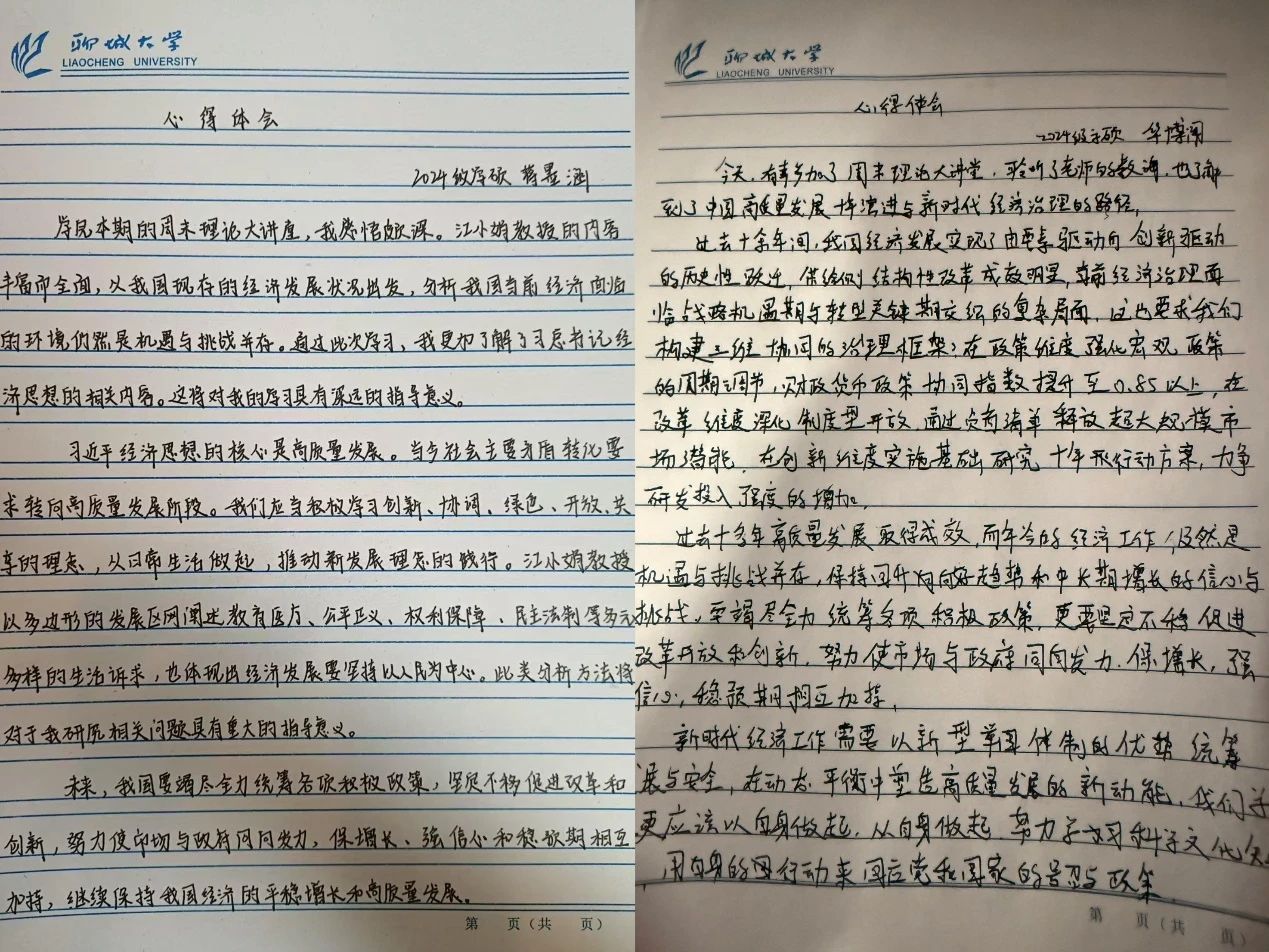 聊城大学
LIAOCHENG UNIVERSITY
心得体会
2024级学硕 蒋墨涵
学完本期的周末理论大讲座，我感悟颇深。江小娟教授的内容
丰富而全面，以我国现存的经济发展状况出发，分析我国当前经济面临
的环境仍然是机遇与挑战并存。通过此次学习，我更加了解了习总书记经
济思想的相关内容。这将对我的学习具有深远的指导意义。
习近平经济思想的核心是高质量发展。当今社会主要矛盾转化要
求转向高质量发展阶段。我们应当积极学习创新、协调、绿色、开放、共
享的理念，从日常生活做起，推动新发展理念的践行。江小娟教授
以多边形的发展区网阐述教育医疗、公平正义、权利保障、民主法制等多元
多样的生活诉求，也体现出经济发展要坚持以人民为中心。此类分析方法将
对于我研究相关问题具有重大的指导意义。
未来，我国要竭尽全力统筹各项积极政策，坚定不移促进改革和
创新，努力使市场与政府同向发力，保增长、强信心和稳预期相互
加持，继续保持我国经济的平稳增长和高质量发展。
第 页（共 页）
聊城大学
LIAOCHENG UNIVERSITY
心得体会
2024级学硕 华博闻
今天，有幸参加了周末理论大讲堂，聆听了老师的教诲，也了解
到了中国高质量发展 演进与新时代经济治理的路径。
过去十余年间，我国经济发展实现了由要素驱动向创新驱动
的历史性跃迁，供给侧结构性改革成效明显，当前经济治理面
临战略机遇期与转型关键期交织的复杂局面，这也要求我们
构建三维协同的治理框架；在政策维度强化宏观政策
的周期调节，财政货币政策协同指数提升至0.85以上，在
改革维度深化制度型开放，通过负面清单释放超大规模市
场潜能，在创新维度实施基础研究十年 行动方案，力争
研发投入强度的增加。
过去十多年高质量发展取得成效，而年今的经济工作仍然是
机遇与挑战并存，保持回升向好趋势和中长期增长的信心与
挑战。要竭尽全力统筹各项积极政策，更要坚定不移促进
改革开放和创新，努力使市场与政府同向发力，保增长，强
信心，稳预期相互加持。
新时代经济工作需要以新型举国体制的优势统筹
展与安全，在动态平衡中塑造高质量发展的新动能，我们学
更应该以自身做起，从自身做起 努力学习科学文化知
用自身的 行动来回应党和国家的号召与政策
第 页（共 页）